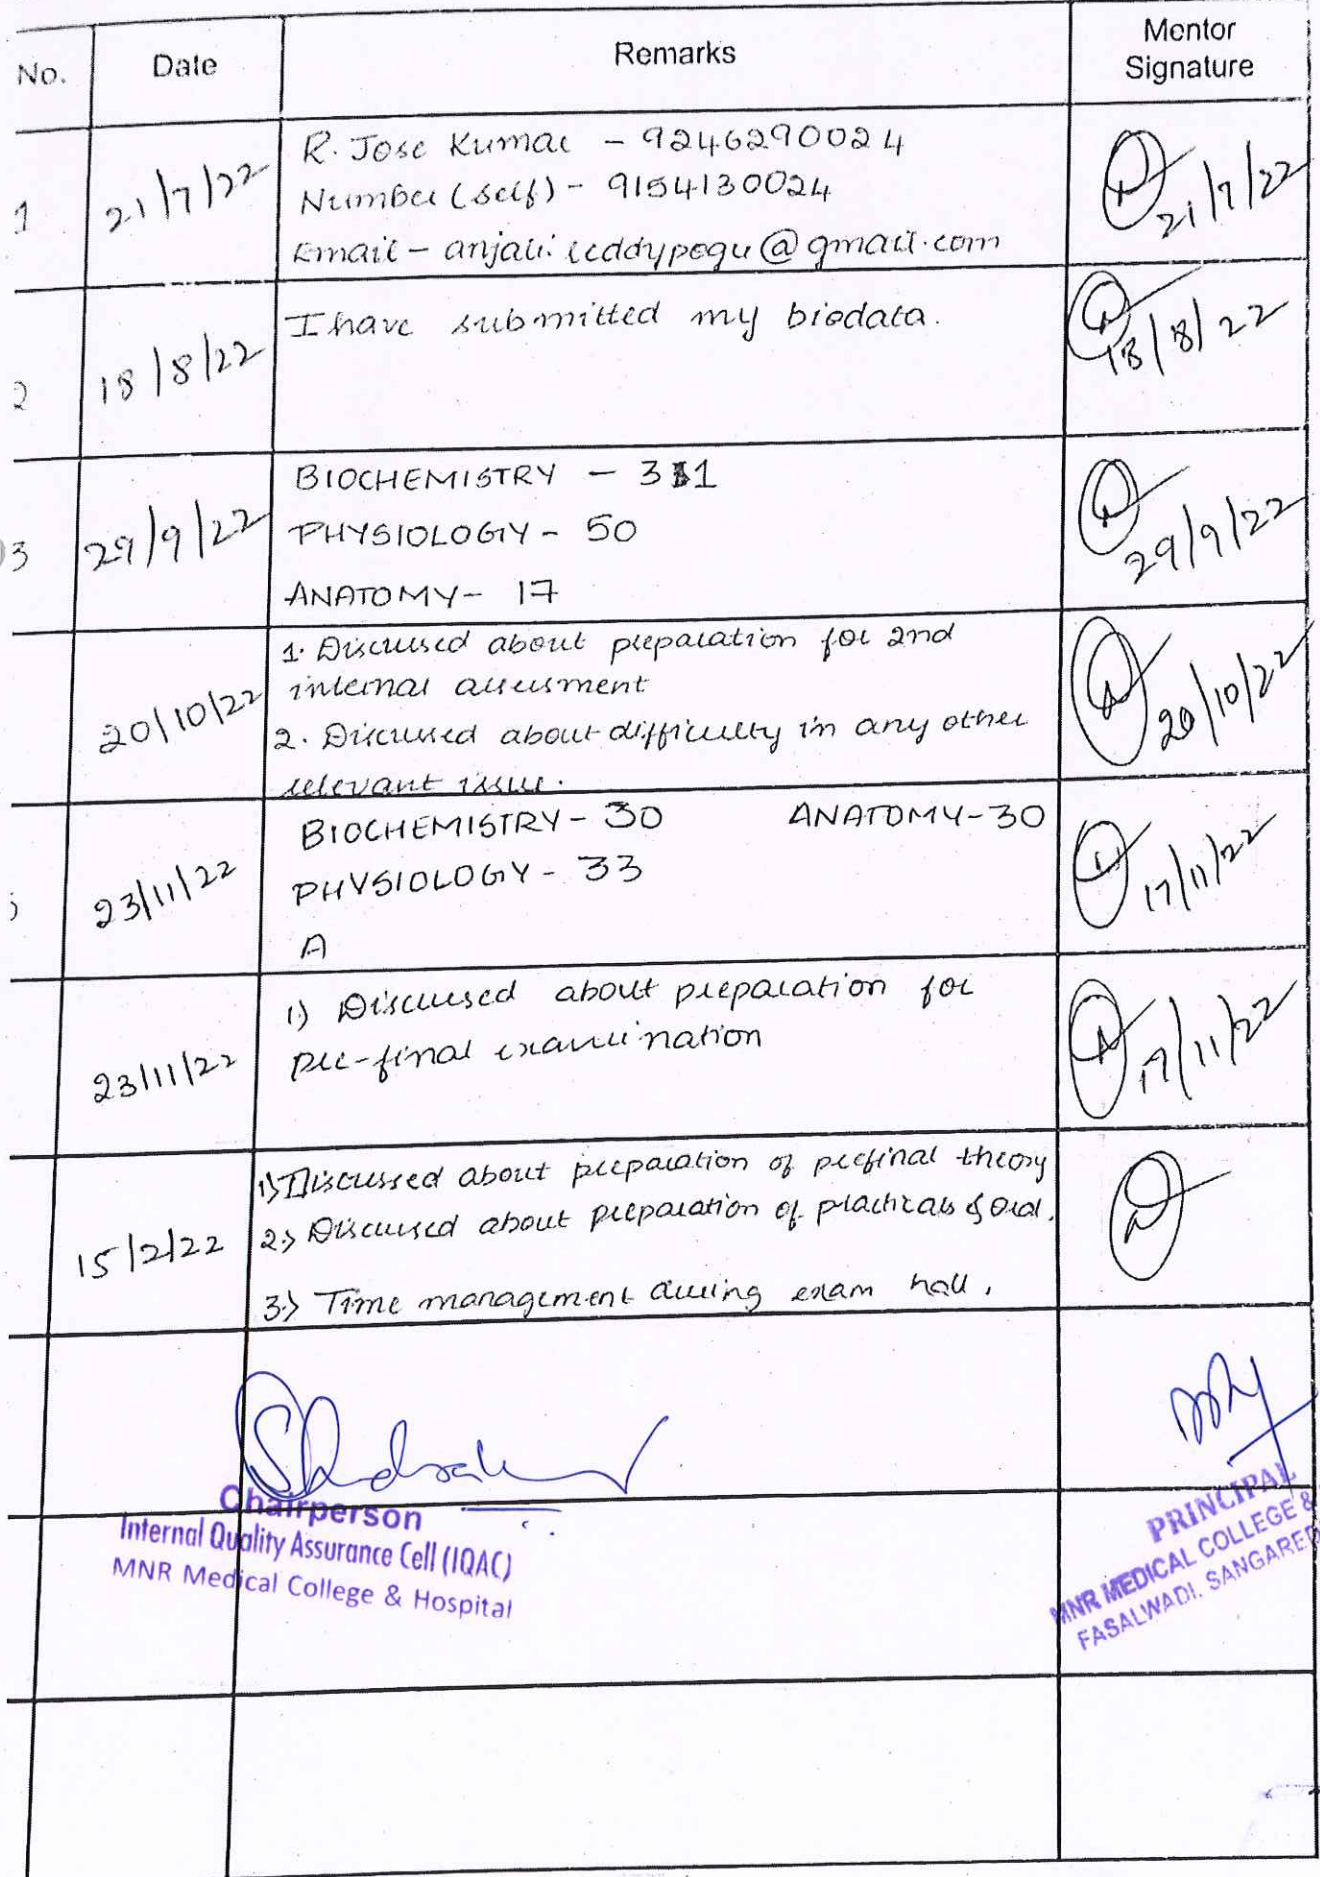 No. Date Remarks Mentor Signature
1 21/7/22 R. Jose Kumar - 9246290024
Number (self) - 9154130024
Email - anjali.reddypogu@gmail.com
21/7/22
2 18/8/22 I have submitted my biodata.
18/8/22
3 29/9/22 BIOCHEMISTRY - 31
PHYSIOLOGY - 50
ANATOMY - 17
29/9/22
20/10/22 1. Discussed about preparation for 2nd
internal assessment
2. Discussed about difficulty in any other
relevant issue.
20/10/22
23/11/22 BIOCHEMISTRY - 30 ANATOMY - 30
PHYSIOLOGY - 33
A
17/11/22
23/11/22 1) Discussed about preparation for
pre-final examination
17/11/22
15/2/22 1) Discussed about preparation of prefinal theory
2) Discussed about preparation of practicals & oral.
3) Time management during exam hall.
Chairperson
Internal Quality Assurance Cell (IQAC)
MNR Medical College & Hospital
PRINCIPAL
MNR MEDICAL COLLEGE &
FASALWADI. SANGARED